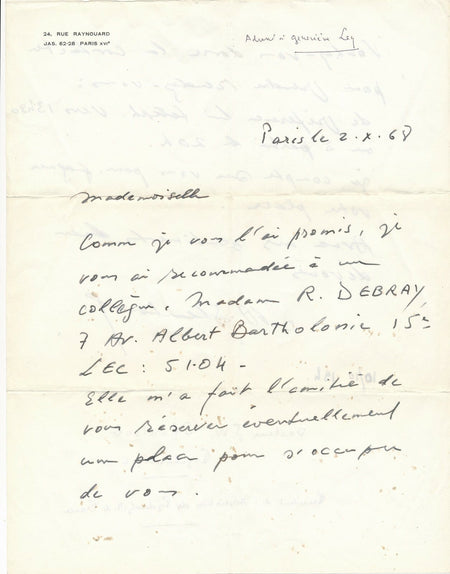 24, RUE RAYNOUARD
JAS. 62-28 PARIS XVIe
à Geneviève Ley
Paris le 2.X.68
Mademoiselle
Comme je vous l'ai promis, je
vous ai recommandée à un
collègue, Madame R. DEBRAY,
7 Av. Albert Bartholomé 15e
LEC : 51.04 -
Elle m'a fait l'amitié de
vous réserver éventuellement
une place pour s'occuper
de vous.